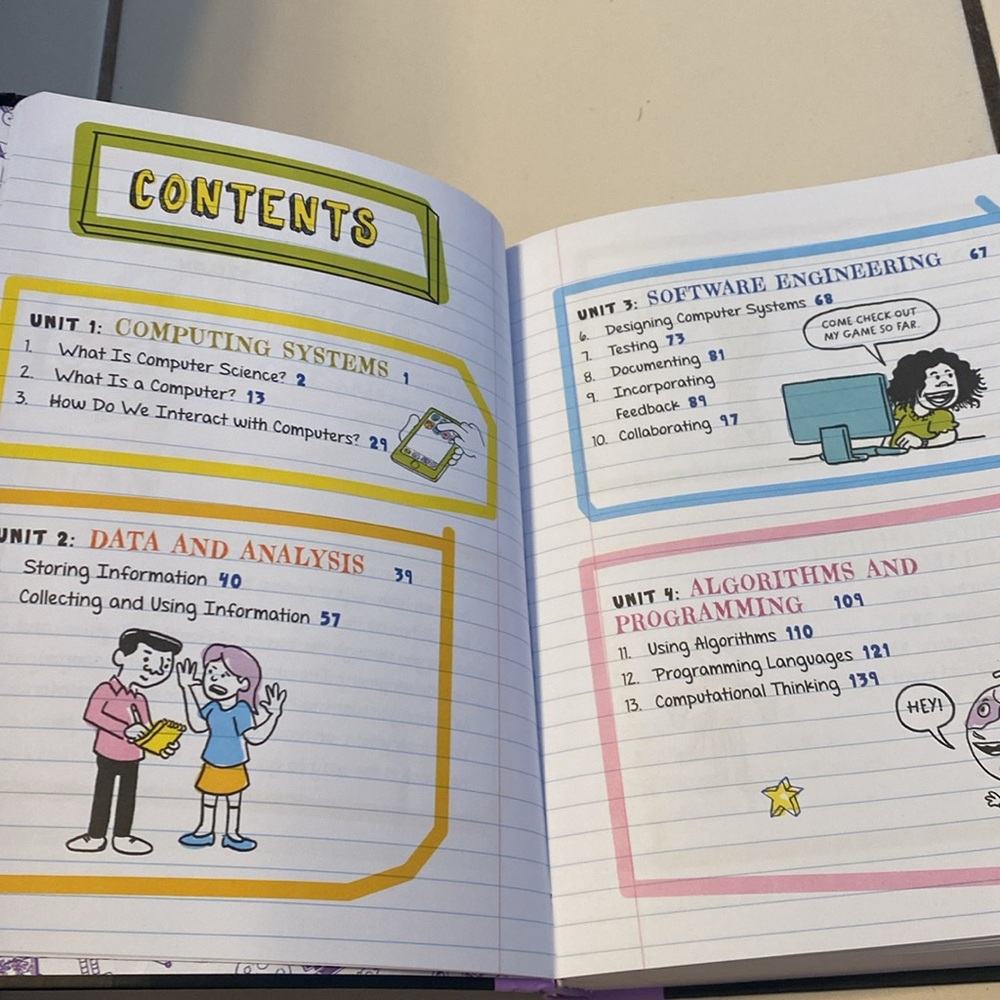 CONTENTS
UNIT 1: COMPUTING SYSTEMS 1
1. What Is Computer Science? 2
2. What Is a Computer? 13
3. How Do We Interact with Computers? 29
UNIT 2: DATA AND ANALYSIS 39
Storing Information 40
Collecting and Using Information 57
UNIT 3: SOFTWARE ENGINEERING 67
6. Designing Computer Systems 68
7. Testing 73
8. Documenting 81
9. Incorporating
Feedback 89
10. Collaborating 97
COME CHECK OUT
MY GAME SO FAR.
UNIT 4: ALGORITHMS AND
PROGRAMMING 109
11. Using Algorithms 110
12. Programming Languages 121
13. Computational Thinking 139
HEY!